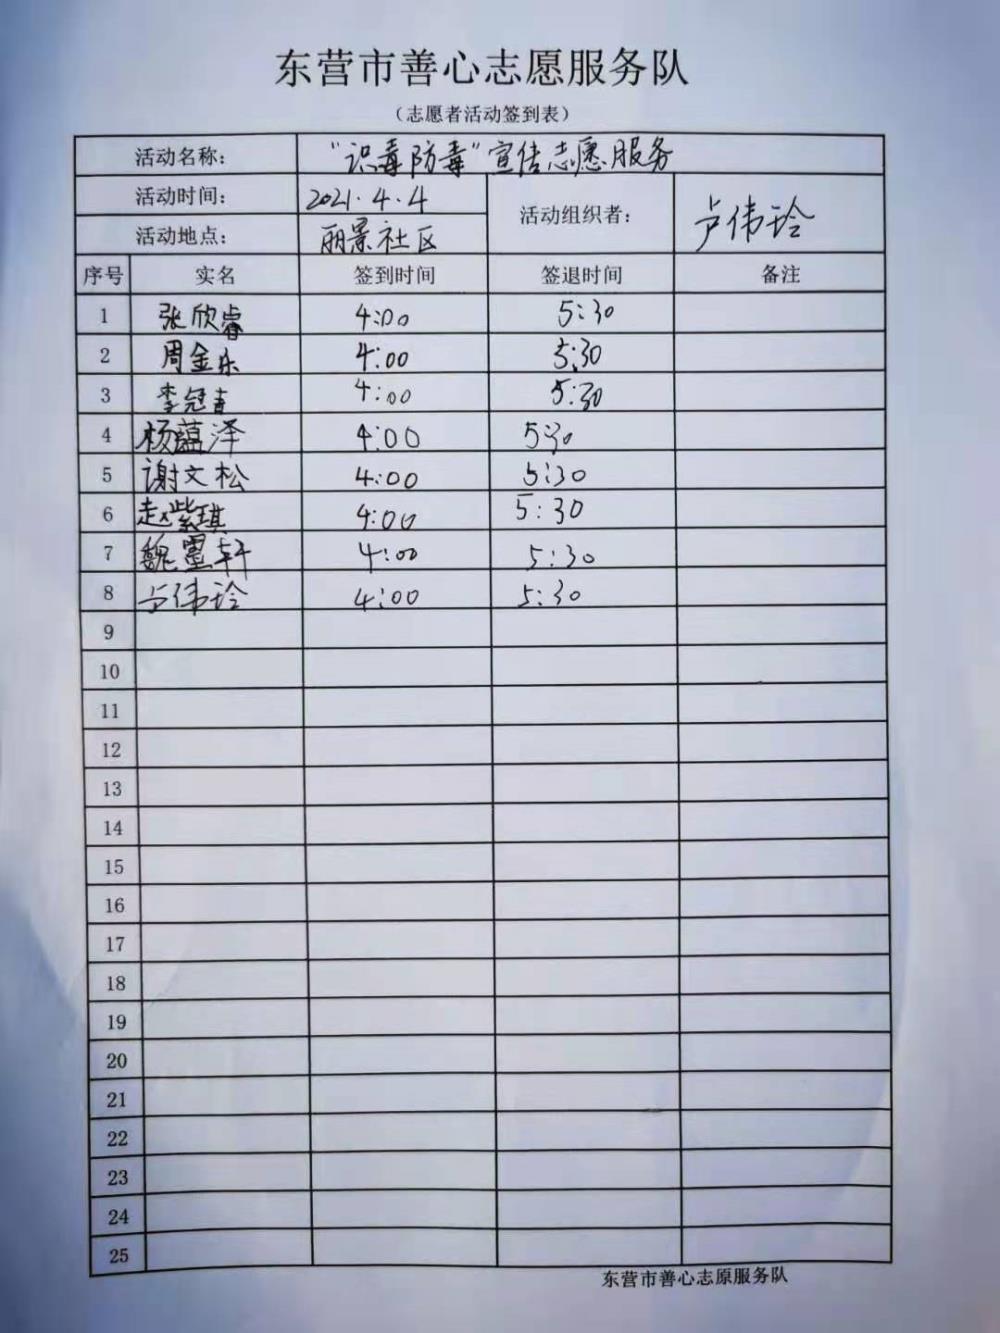 东营市善心志愿服务队
（志愿者活动签到表）
活动名称： “识毒防毒”宣传志愿服务
活动时间： 2021.4.4 活动组织者： 卢伟玲
活动地点： 丽景社区
序号 实名 签到时间 签退时间 备注
1 张欣睿 4:00 5:30
2 周金乐 4:00 5:30
3 李冠 4:00 5:30
4 杨蕴泽 4:00 5:30
5 谢文松 4:00 5:30
6 赵紫琪 4:00 5:30
7 魏轩 4:00 5:30
8 卢伟玲 4:00 5:30
9
10
11
12
13
14
15
16
17
18
19
20
21
22
23
24
25
东营市善心志原服务队